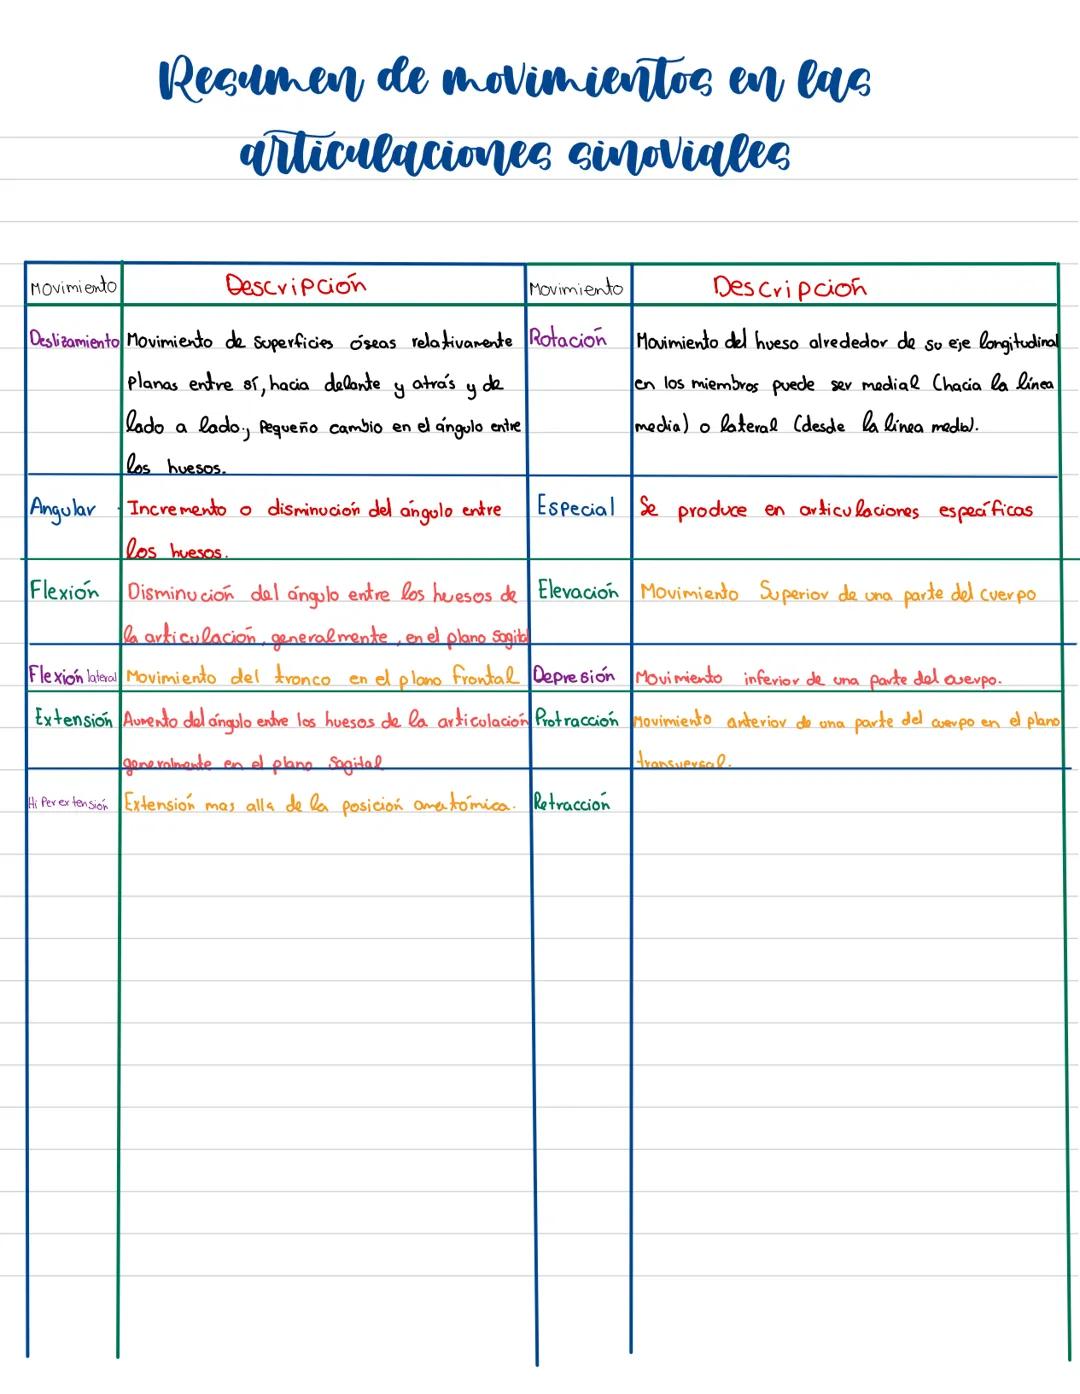 Resumen de movimientos en las
articulaciones sinoviales
Movimiento Descripción Movimiento Descripción
Deslizamiento Movimiento de superficies óseas relativamente Rotación Movimiento del hueso alrededor de su eje longitudinal
planas entre sí, hacia delante y atrás y de en los miembros puede ser medial (hacia la línea
lado a lado; pequeño cambio en el ángulo entre media) o lateral (desde la línea media).
los huesos.
Angular Incremento o disminución del ángulo entre Especial Se produce en articulaciones específicas
los huesos.
Flexión Disminución del ángulo entre los huesos de Elevación Movimiento Superior de una parte del cuerpo
la articulación, generalmente, en el plano sagital
Flexión lateral Movimiento del tronco en el plano frontal Depresión Movimiento inferior de una parte del cuerpo.
Extensión Aumento del ángulo entre los huesos de la articulación Protracción Movimiento anterior de una parte del cuerpo en el plano
generalmente en el plano Sagital transversal.
Hiperextensión Extensión mas alla de la posición anatómica. Retracción